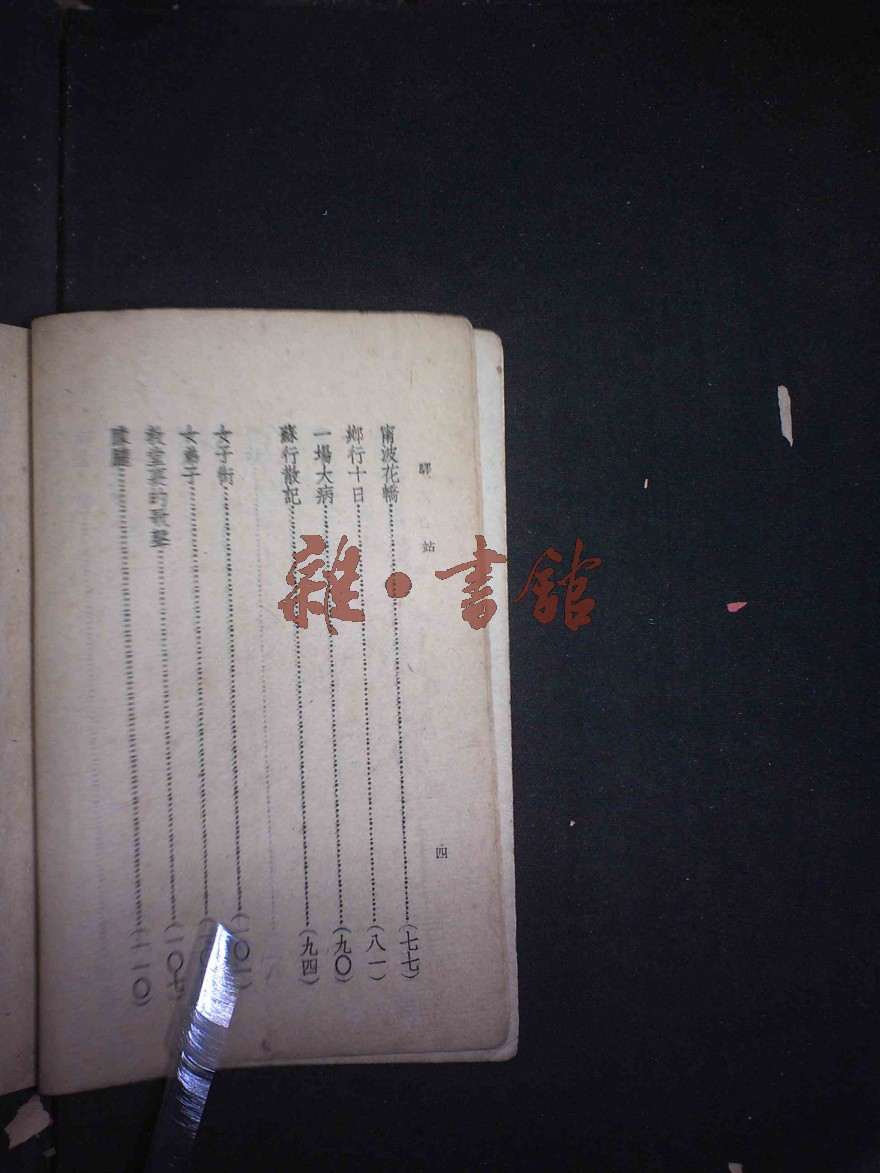 驛 站
四
甯波花轎………(七七)
鄉行十日………(八一)
一場大病………(九〇)
蘇行散記………(九四)
女子街………
教堂裏的歌聲………(一〇七)
………(一一〇)
雜·書館